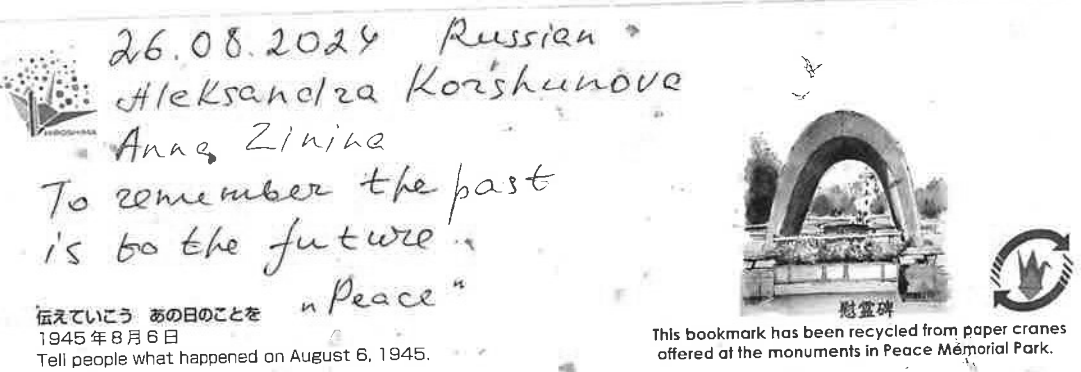 26.08.2024 Russian
Aleksandra Korshunova
Anna Zinina
To remember the past
is to the future.
"Peace"
HIROSHIMA
伝えていこう あの日のことを
1945年8月6日
Tell people what happened on August 6, 1945.
慰霊碑
This bookmark has been recycled from paper cranes
offered at the monuments in Peace Memorial Park.